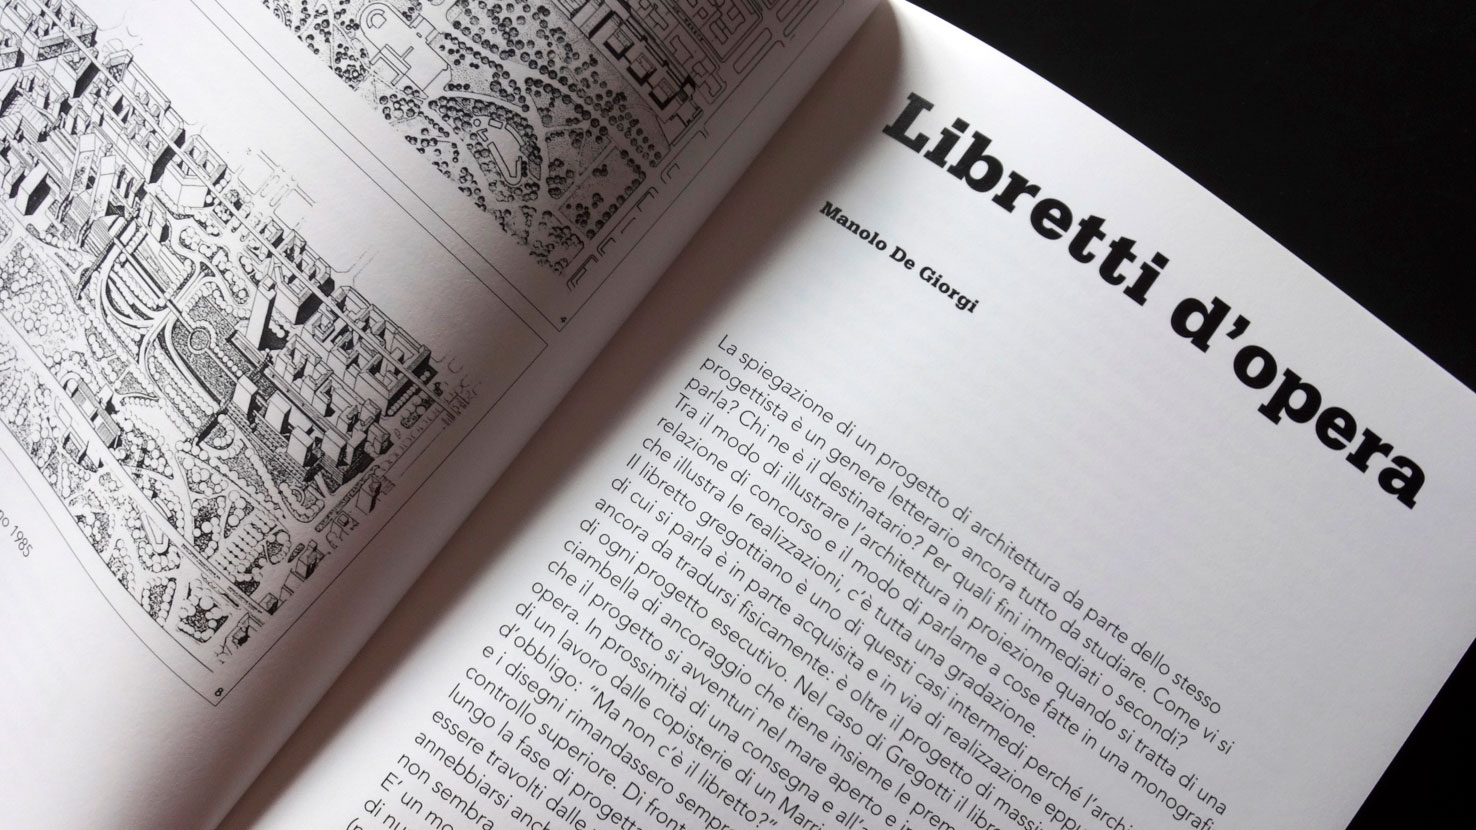 4
8
1985
Libretti d'opera
Manolo De Giorgi
La spiegazione di un progetto di architettura da parte dello stesso
progettista è un genere letterario ancora tutto da studiare. Come vi si
parla? Chi ne è il destinatario? Per quali fini immediati o secondi?
Tra il modo di illustrare l'architettura in proiezione quando si tratta di una
relazione di concorso e il modo di parlarne a cose fatte in una
che illustra le realizzazioni, c'è tutta una gradazione.
Il libretto gregottiano è uno di questi casi intermedi perché
di cui si parla è in parte acquisita e in via di realizzazione
ancora da tradursi fisicamente: è oltre il progetto di
di ogni progetto esecutivo. Nel caso di Gregotti il
ciambella di ancoraggio che tiene insieme le
che il progetto si avventuri nel mare aperto e
opera. In prossimità di una consegna e
di un lavoro dalle copisterie di un
d'obbligo: "Ma non c'è il libretto?"
e i disegni rimandassero
controllo superiore. Di
lungo la fase di
essere travolti dalle
annebbiarsi
non sembra
E' un
di